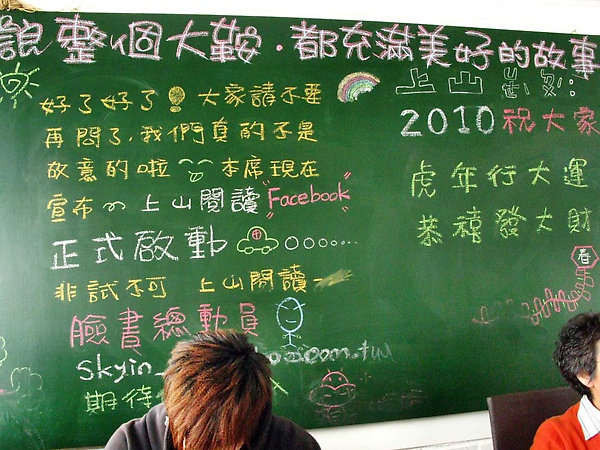 說整個大鞍·都充滿美好的故事
好了好了!大家請不要
再問了,我們真的不是
故意的啦
本席現在
宣布 上山閱讀"Facebook"
正式啟動
非試不可 上山閱讀
臉書總動員
skyin_
.com.tw
期待
上山
2010祝大家
虎年行大運
恭禧發大財
春